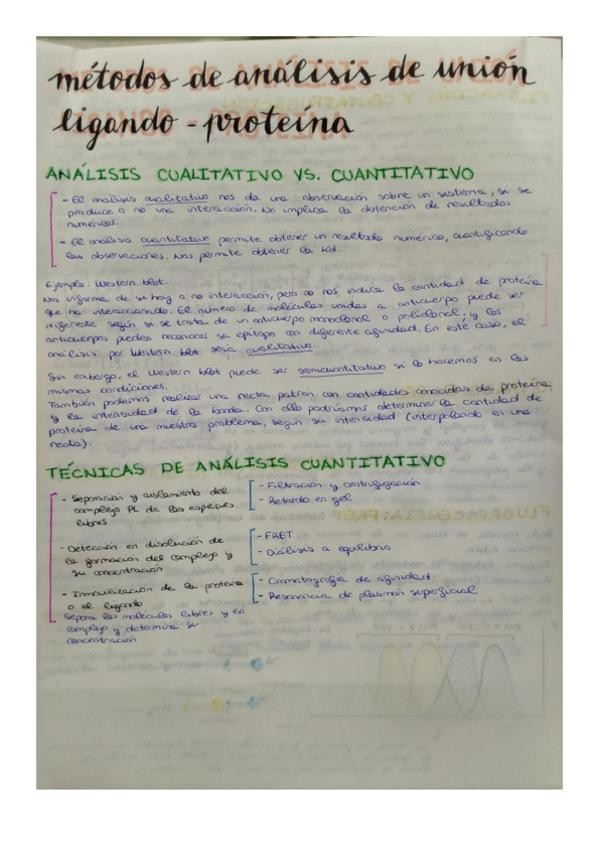 métodos de análisis de unión
ligando - proteína
ANÁLISIS CUALITATIVO VS. CUANTITATIVO
- El análisis cualitativo nos da una observación sobre un sistema, si se
produce o no una interacción. No implica la obtención de resultados
numéricos.
- El análisis cuantitativo permite obtener un resultado numérico, cuantificando
las observaciones. Nos permite obtener la Kd.
Ejemplo: Western blot.
Nos informa de si hay o no interacción, pero no nos indica la cantidad de proteína
que ha interaccionado. El número de moléculas unidas a anticuerpo puede ser
diferente según si se trata de un anticuerpo monoclonal o policlonal; y los
anticuerpos pueden reconocer su epítopo con diferente afinidad. En este caso, el
análisis por Western blot sería cualitativo.
Sin embargo, el Western blot puede ser semicuantitativo si lo hacemos en las
mismas condiciones.
También podemos realizar una recta patrón con cantidades conocidas de proteína
y la intensidad de la banda. Con ello podríamos determinar la cantidad de
proteína de una muestra problema, según su intensidad (interpolando en una
recta).
TÉCNICAS DE ANÁLISIS CUANTITATIVO
- Separación y aislamiento del
complejo PL de las especies
libres
- Filtración y centrifugación
- Retardo en gel
- Detección en disolución de
la formación del complejo y
su concentración
- FRET
- Diálisis a equilibrio
- Inmovilización de la proteína
o el ligando
Separa las moléculas libres y en
complejo y determina su
concentración
- Cromatografía de afinidad
- Resonancia de plasmón superficial